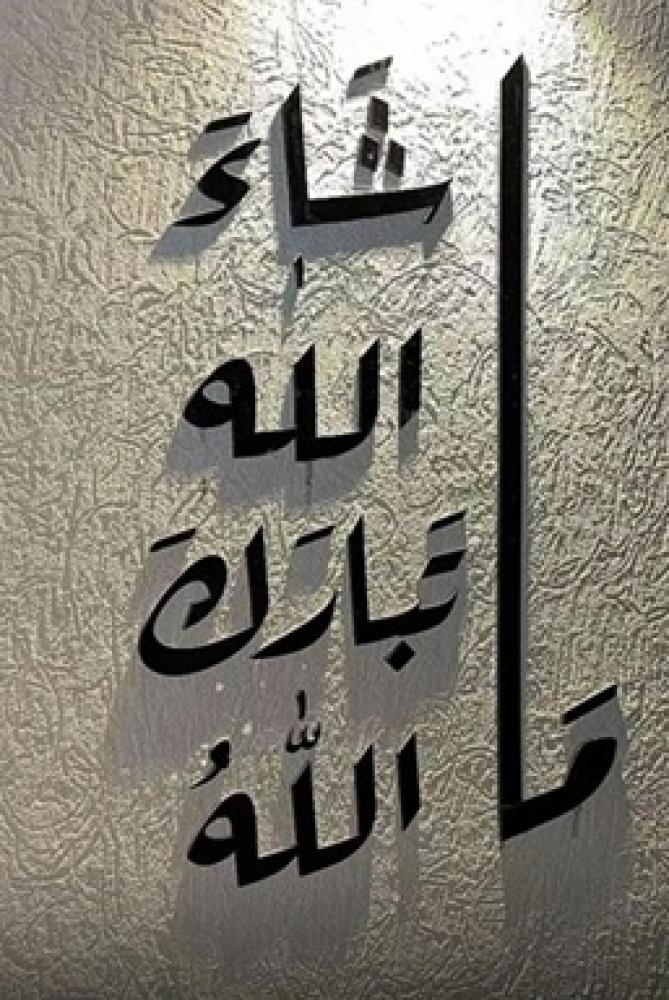 مَا
شَاءَ
الله
تَبَارَكَ
اللّٰهُ